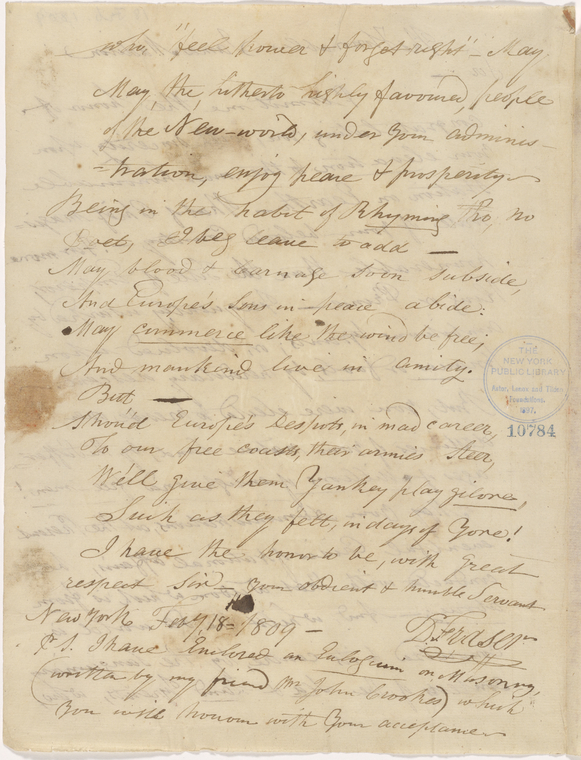 who, "feel power & forget right" – May
May the hitherto highly favoured, people
of the New-world, under your adminis –
– tration, enjoy peace & prosperity –
Being in the habit of Rhyming Tho, no
Poet, I beg leave to add —
May blood & carnage soon subside,
And Europe's Sons in peace abide:
May commerce like the wind be free;
And mankind live in amity.
But —
Shou'd Europe's Despots, in mad career,
To our free coasts, their armies steer,
We'll give them Yankey play gilore,
Such as they felt, in days of Yore!
I have the honor to be, with great
respect Sir – Your obdient & humble Servant
New York Feby 18th 1809 –
D. Fraser
P S. I have Enclosed an Eulogium on Masonry,
(written by my friend Mr John Crookes) which
you will honour with Your acceptance
THE
NEW YORK
PUBLIC LIBRARY
Astor, Lenox and Tilden
Foundation.
1897.
10784